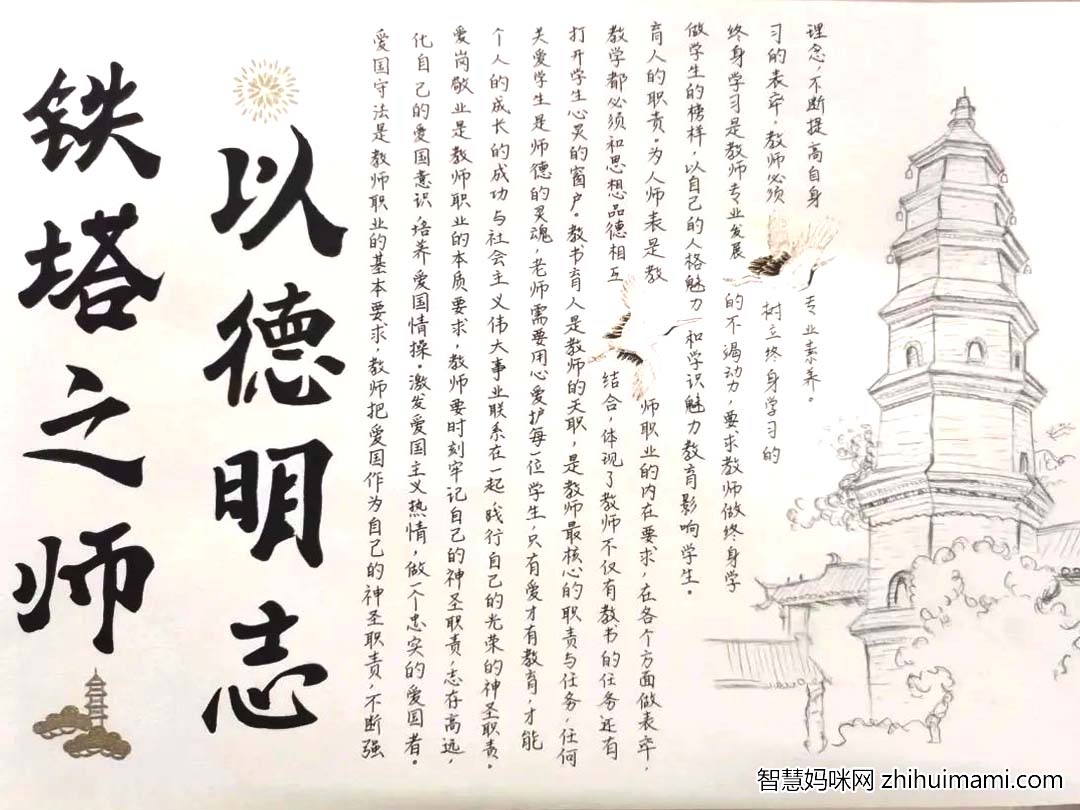 铁塔之师
以德明志
爱国守法是教师职业的基本要求,教师把爱国作为自己的神圣职责,不断强
化自己的爱国意识,培养爱国情操。激发爱国主义热情,做一个忠实的爱国者。
爱岗敬业是教师职业的本质要求,教师要时刻牢记自己的神圣职责,志存高远,
个人的成长的成功与社会主义伟大事业联系在一起,践行自己的光荣的神圣职责。
关爱学生是师德的灵魂,老师需要用心爱护每一位学生,只有爱才有教育,才能
打开学生心灵的窗户。教书育人是教师的天职,是教师最核心的职责与任务,任何
教学都必须和思想品德相互结合,体现了教师不仅有教书的任务还有
育人的职责。为人师表是教师职业的内在要求,在各个方面做表率,
做学生的榜样,以自己的人格魅力和学识魅力教育影响学生。
终身学习是教师专业发展的不竭动力,要求教师做终身学
习的表率,教师必须树立终身学习的
理念,不断提高自身专业素养。
智慧妈咪网 zhihuimami.com